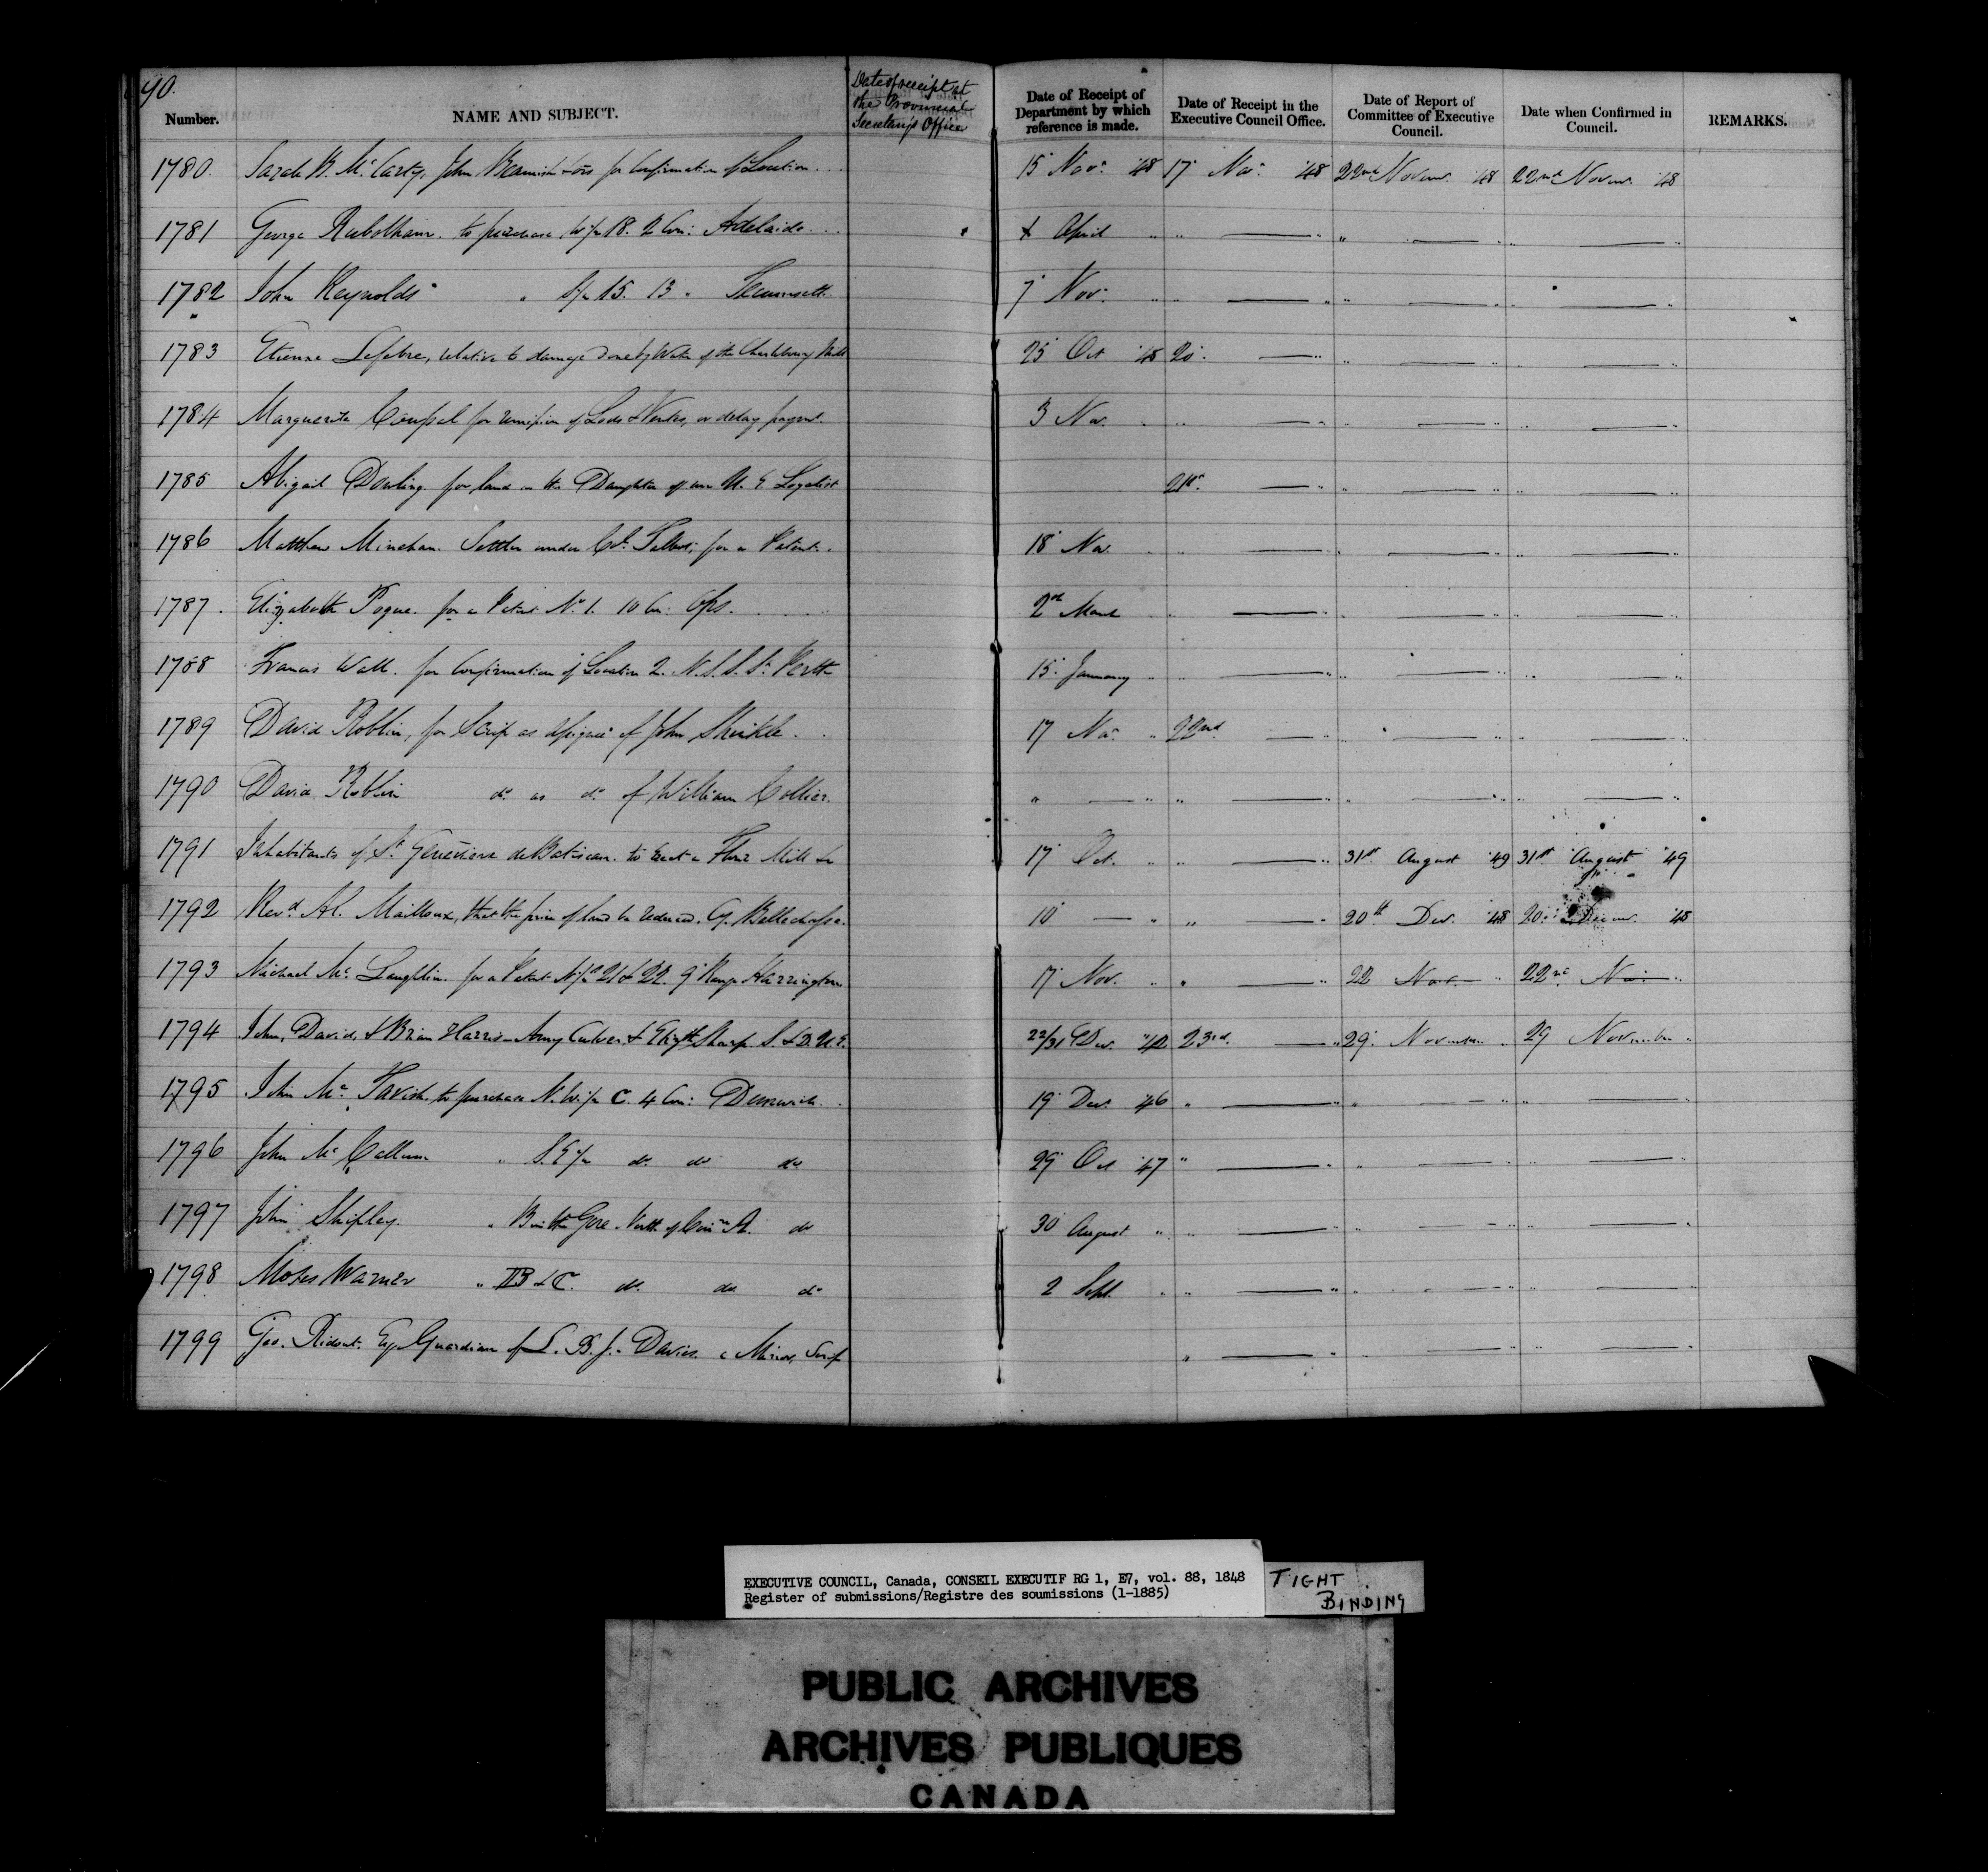 90.
Number. NAME AND SUBJECT. Date of receipt at the Provincial Secretary's Office Date of Receipt of Department by which reference is made. Date of Receipt in the Executive Council Office. Date of Report of Committee of Executive Council. Date when Confirmed in Council. REMARKS.
1780. Sarah B. McCarty, John Beamish & ors for Confirmation of Location... 15 Novr. '48 17 Novr. '48 22nd Novemr. '48 22nd Novemr. '48
1781 George to purchase W/p 18. 2 Con: Adelaide... April " " — " " — " " — "
1782 John Reynolds " S/p 15. 13 " Tecumseth. 7 Nov. " " — " " — " " — "
1783 Etienne Lefebre, relative to damage done by Water of the Charlesbourg Mill 25 Oct '48 20. — " " — " " — "
1784 Marguerite for remission of Lods & Ventes, or delay paymt. 3 Nov. " " — " " — " " — "
1785 Abigail Dowling for land as the Daughter of an U. E Loyalist 21st. — " " — " " — "
1786 Matthew Minehan. Settler under Col. Talbot; for a Patent. 18 Nov. " " — " " — " " — "
1787. Elizabeth Pogue. for a Patent No. 1. 10 Con: Ops. 2nd March " " — " " — " " — "
1788 Francis Wall. for Confirmation of Location 2. N. S. S. St. Perth 15. January " " — " " — " " — "
1789 David Roblin, for Scrip as assignee of John Shinkle. 17 Nov. " 22nd. — " " — " " — "
1790 David Roblin do. as do. of William Collier. " — " " — " " — " " — "
1791 Inhabitants of St. Genevieve de Batiscan. to Erect a Flour Mill &c 17 Oct. " " — " 31st August '49 31st August '49
1792 Revd. Al. Mailloux, that the price of land be reduced. Cy. Bellechasse. 10 — " " — " 20th Decr. '48 20. Decemr. '48
1793 Michael McLaughlin. for a Patent N/ps 21 & 22. 9 Range Harrington 17 Nov. " " — " 22 Nov. " 22nd Nov. "
1794 John, David, & Brian Harris – Amy Culver & Elizth. Sharp. S. & D. U.E. 22/31 Decr. '42 23rd. — " 29. November " 29 November "
1795 John McTavish. to purchase N. W/p C. 4 Con: Dunwich. 19 Decr. '46 " — " " — " " — "
1796 John McCallum " S. E/p do. do do 29 Oct '47 " — " " — " " — "
1797 John Shipley. " B in the Gore. North of Con: A. do 30 August " " — " " — " " — "
1798 Moses Warner " B & C. do. do. do 2 Sept. " " — " " — " " — "
1799 Geo. Ridout. Esq. Guardian of Davies. a Minor, Scrip " — " " — " " — "
EXECUTIVE COUNCIL, Canada, CONSEIL EXECUTIF RG 1, E7, vol. 88, 1848
Register of submissions/Registre des soumissions (1-1885)
TIGHT BINDING
PUBLIC ARCHIVES
ARCHIVES PUBLIQUES
CANADA